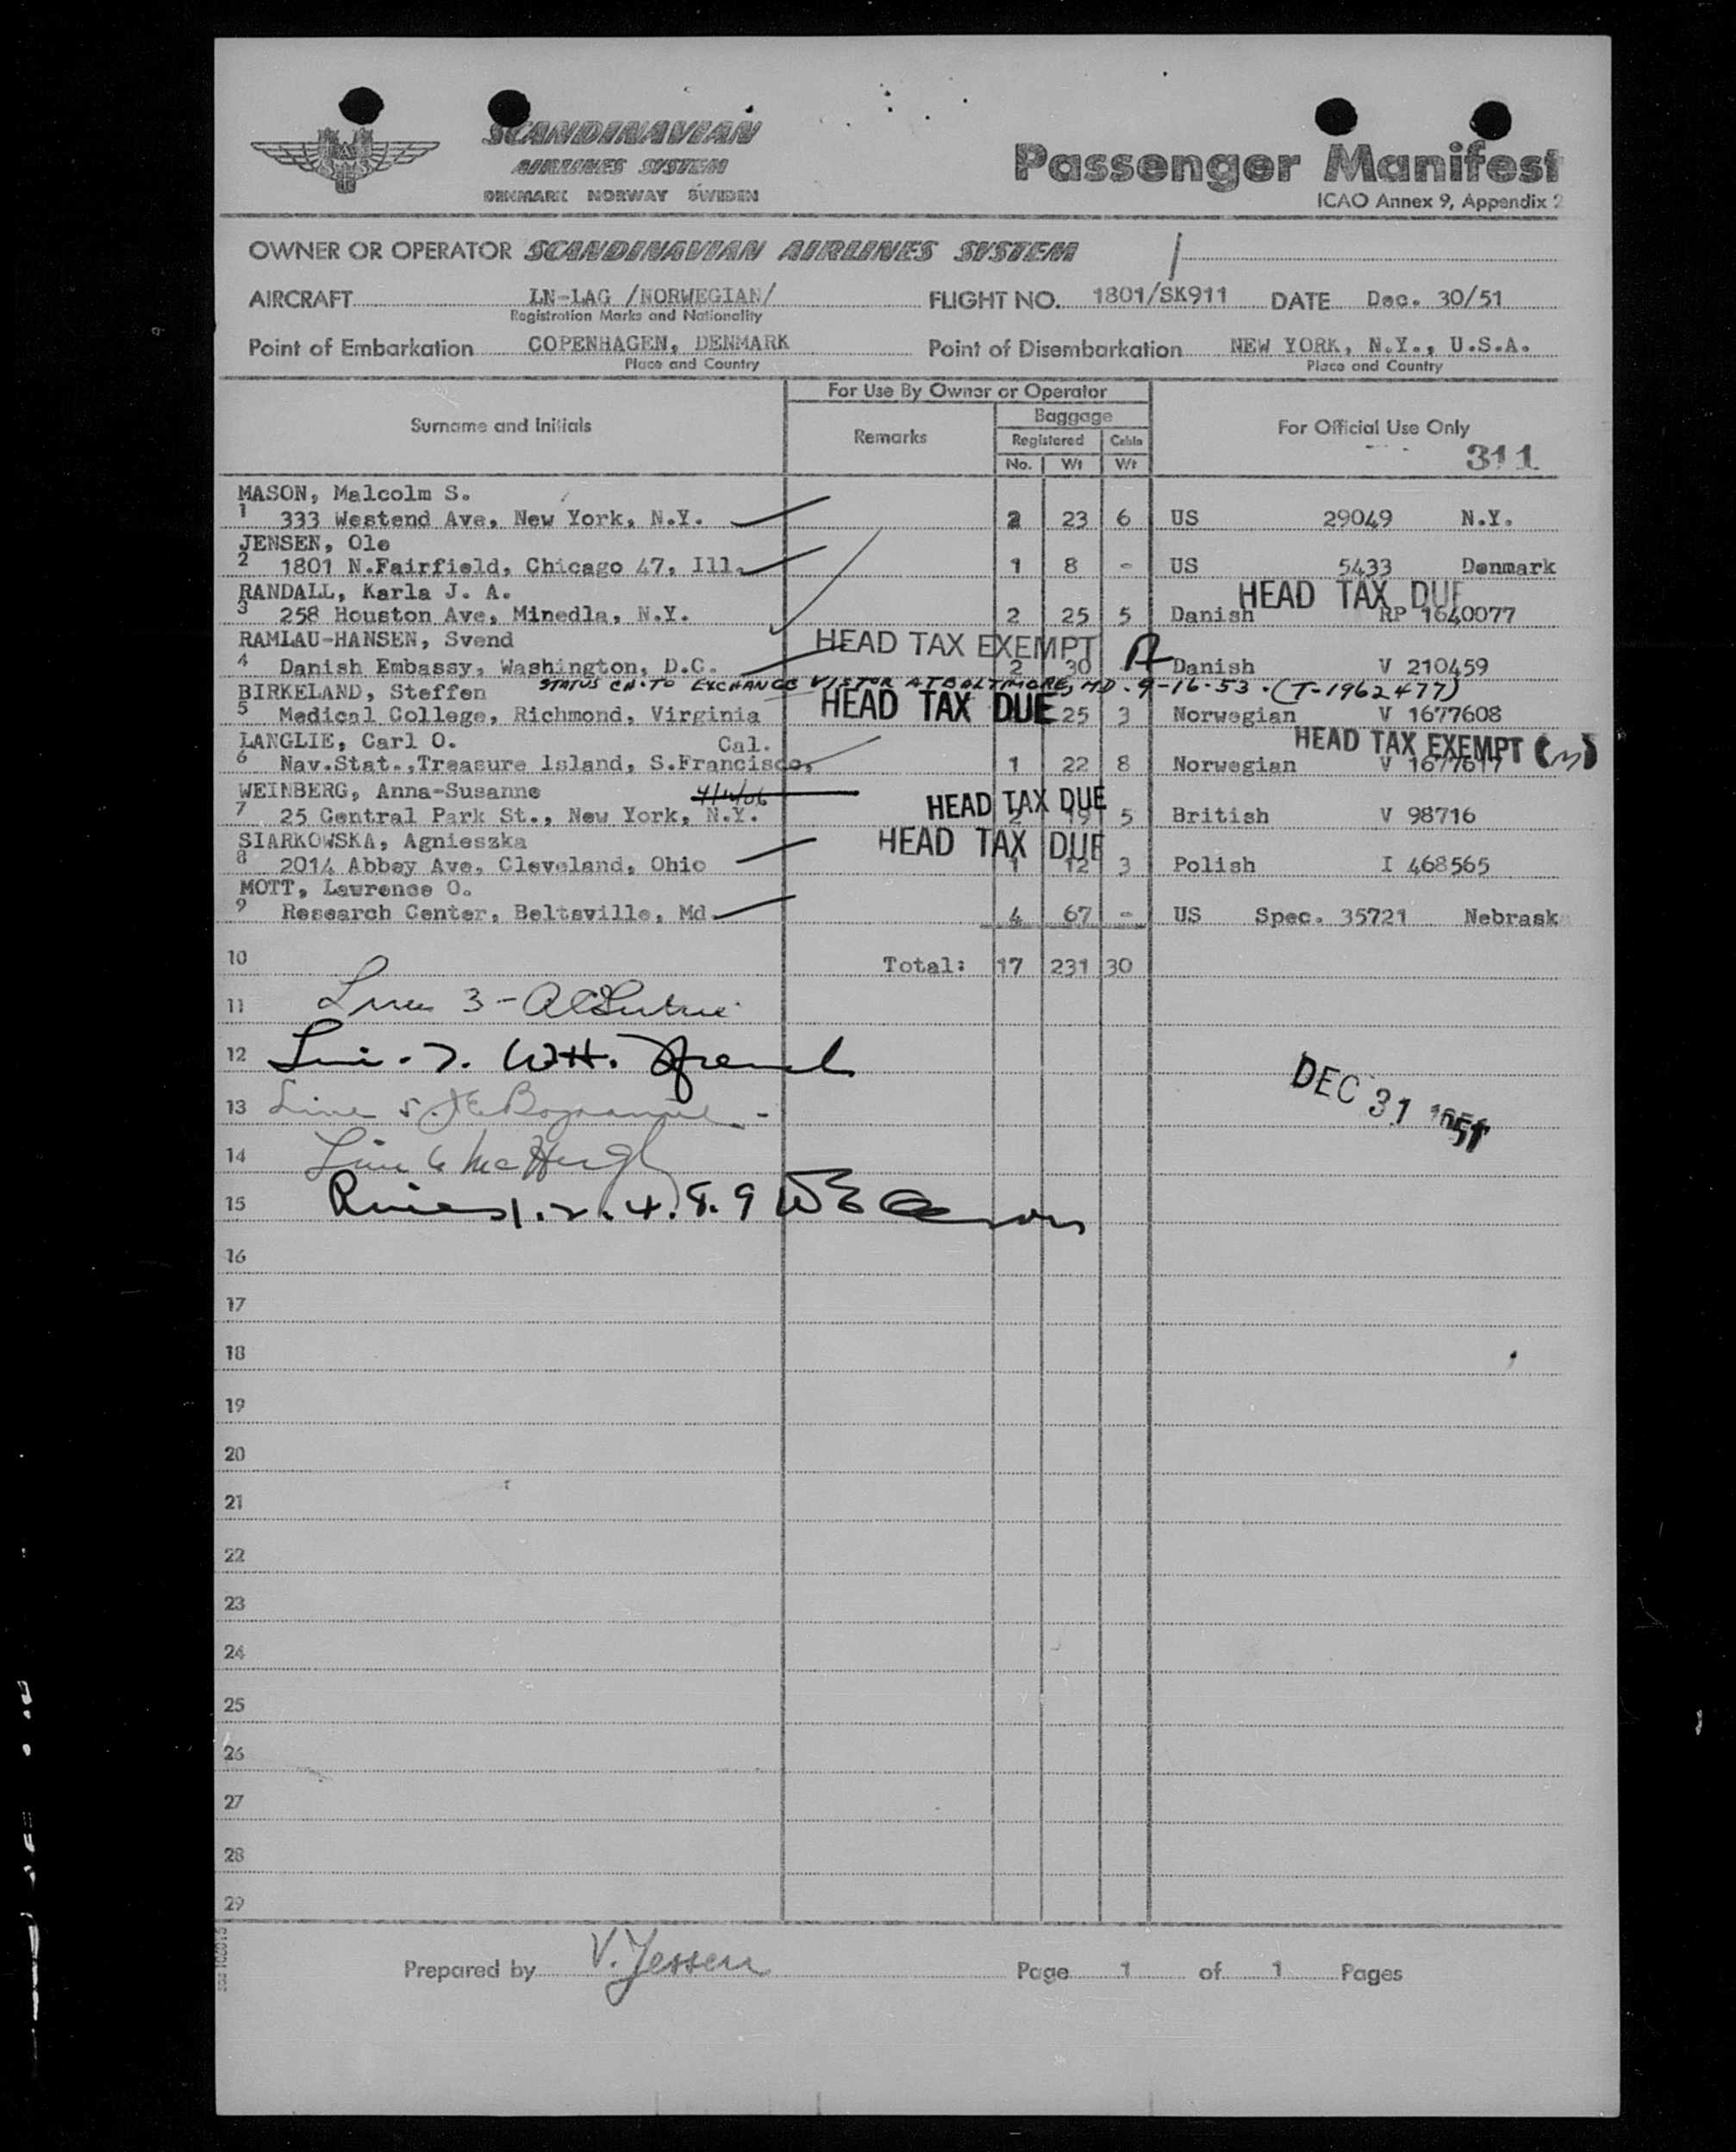 SCANDINAVIAN
AIRLINES SYSTEM
DENMARK NORWAY SWEDEN
Passenger Manifest
ICAO Annex 9, Appendix 2
OWNER OR OPERATOR SCANDINAVIAN AIRLINES SYSTEM
AIRCRAFT LN-LAG /NORWEGIAN/ FLIGHT NO. 1801/SK911 DATE Dec. 30/51
Registration Marks and Nationality
Point of Embarkation COPENHAGEN, DENMARK Point of Disembarkation NEW YORK, N.Y., U.S.A.
Place and Country Place and Country
For Use By Owner or Operator
Surname and Initials Remarks Baggage For Official Use Only
Registered Cabin
No. Wt Wt
311
MASON, Malcolm S.
1 333 Westend Ave, New York, N.Y. 2 23 6 US 29049 N.Y.
JENSEN, Ole
2 1801 N.Fairfield, Chicago 47, Ill. 1 8 - US 5433 Denmark
RANDALL, Karla J. A. HEAD TAX DUE
3 258 Houston Ave, Minedla, N.Y. 2 25 5 Danish RP 1640077
RAMLAU-HANSEN, Svend HEAD TAX EXEMPT
4 Danish Embassy, Washington, D.C. 2 30 Danish V 210459
STATUS CH. TO EXCHANGE VISTOR AT BALTIMORE, MD. 9-16-53. (T-1962477)
BIRKELAND, Steffen HEAD TAX DUE
5 Medical College, Richmond, Virginia 25 3 Norwegian V 1677608
LANGLIE, Carl O. Cal. HEAD TAX EXEMPT (m)
6 Nav.Stat.,Treasure Island, S.Francisco, 1 22 8 Norwegian V 1677617
WEINBERG, Anna-Susanne HEAD TAX DUE
7 25 Central Park St., New York, N.Y. 2 19 5 British V 98716
SIARKOWSKA, Agnieszka HEAD TAX DUE
8 2014 Abbey Ave, Cleveland, Ohio 1 12 3 Polish I 468565
MOTT, Lawrence O.
9 Research Center, Beltsville, Md. 4 67 - US Spec. 35721 Nebrask
10 Total: 17 231 30
11 Line 3 -
12 Line 7. WH. French
DEC 31 1951
13 Line 5.
14 Line 6 McHugh
15 Lines 1.2.4.8.9
16
17
18
19
20
21
22
23
24
25
26
27
28
29
Prepared by V. Jessen Page 1 of 1 Pages